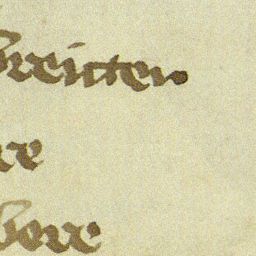 breitten
re
bere